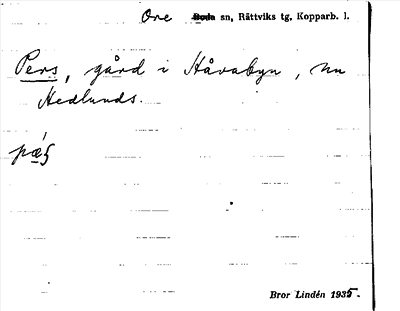 Ore Boda sn, Rättviks tg, Kopparb. l.
Pers, gård i Håvabyn, nu
Hedlunds.
Bror Lindén 1935.